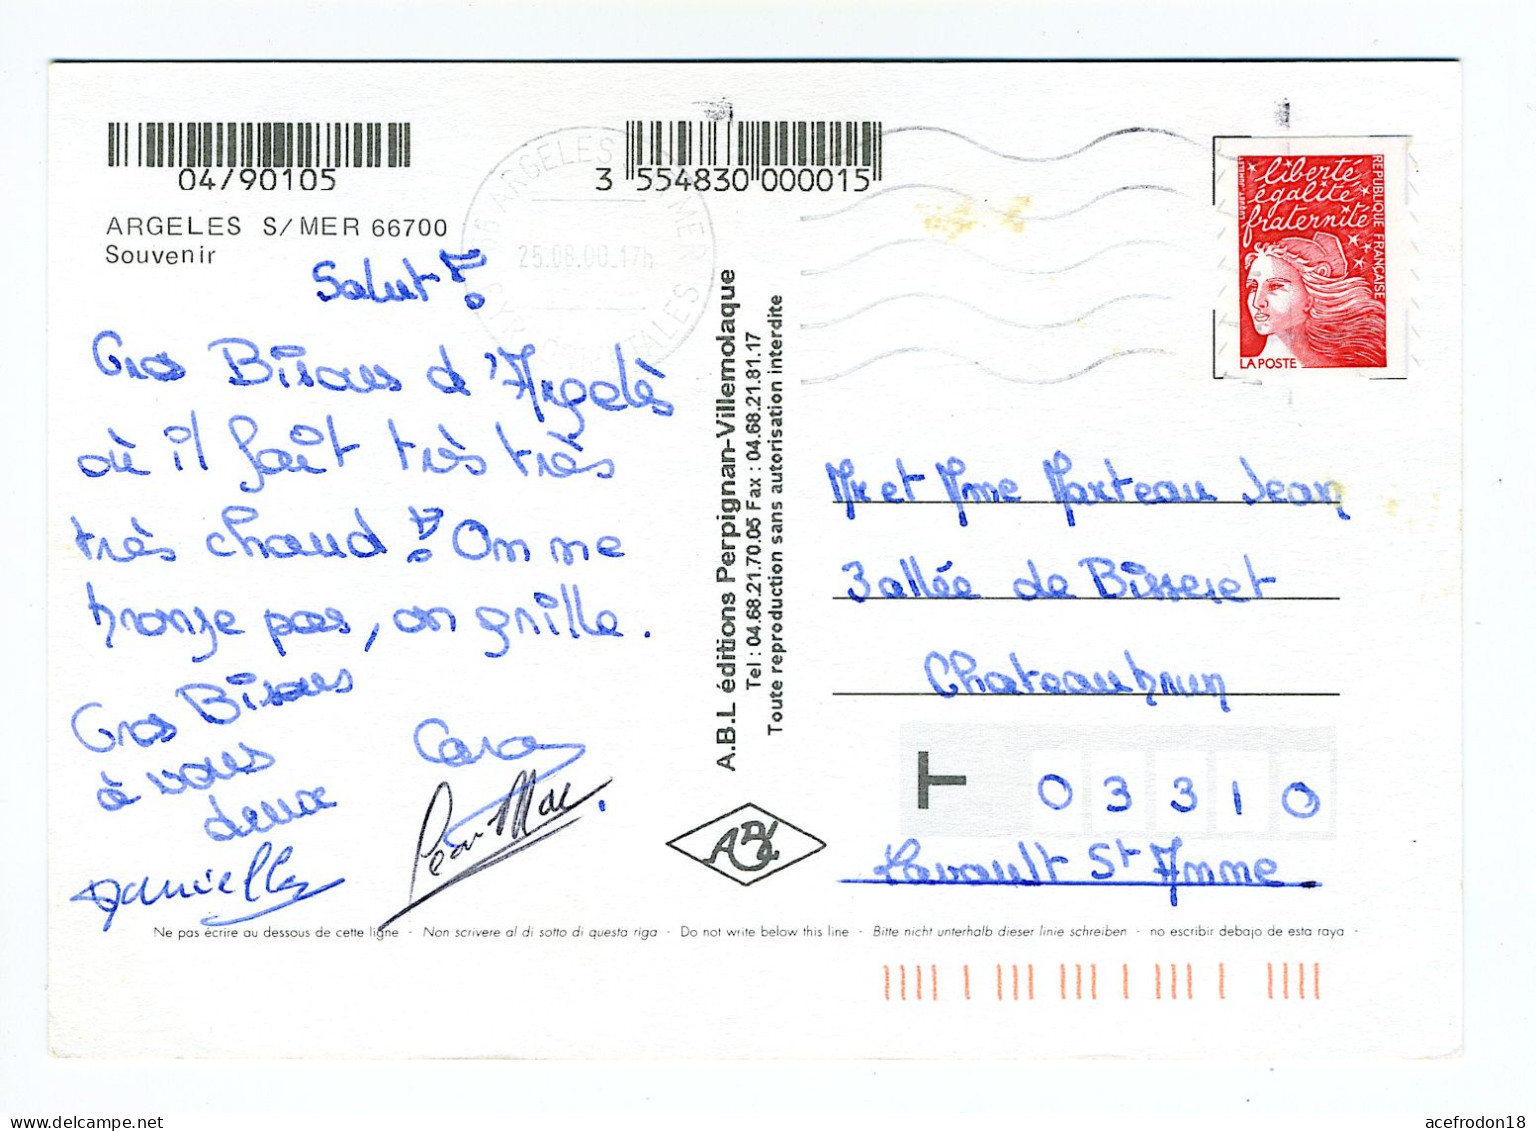 04/90105
3 554830 000015
ARGELES S/MER 66700
Souvenir
66 ARGELES SUR MER
25.08.00.17h
PYR ORIENTALES
Salut !
Gros Bisous d'Argelès
où il fait très très
très chaud ! On ne
bronze pas, on grille.
Gros Bisous
à vous
deux
Danielle
Jean Marc
A.B.L éditions Perpignan-Villemolaque
Tel : 04.68.21.70.05 Fax : 04.68.21.81.17
Toute reproduction sans autorisation interdite
ABL
liberté
égalité
fraternité
REPUBLIQUE FRANÇAISE
LA POSTE
Mr et Mme Marteau Jean
3 allée de Bisseret
Chateaubrun
T 03310
Lavault St Anne
Ne pas écrire au dessous de cette ligne - Non scrivere al di sotto di questa riga - Do not write below this line - Bitte nicht unterhalb dieser linie schreiben - no escribir debajo de esta raya -
delcampe.net
acefrodon18